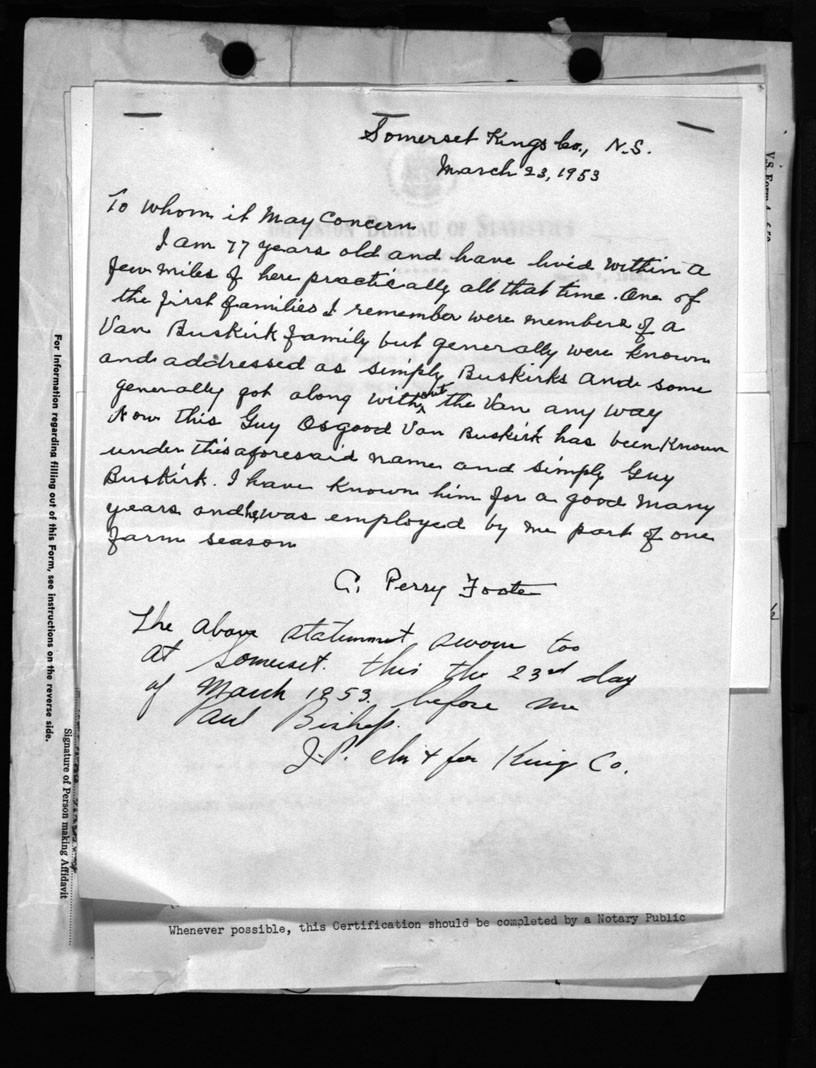 Somerset Kings Co., N.S.
March 23, 1953
To Whom it May Concern
I am 77 years old and have livid within a
few miles of here practically all that time. One of
the first families I remember were members of a
Van Buskirk family but generally were known
and addressed as simply Buskirks and some
generally got along without the Van any way
Now this Guy Osgood Van Buskirk has been known
under this aforesaid name and simply Guy
Buskirk. I have known him for a good many
years and he was employed by me part of one
farm season
C. Perry Foote
The above statement sworn too
at Somerset this the 23rd day
of March 1953 before me
Paul Bishop.
J.P. in & for King Co.
Whenever possible, this Certification should be completed by a Notary Public
For Information regarding filling out of this Form, see instructions on the reverse side.
Signature of Person making Affidavit
DOMINION BUREAU OF STATISTICS
CANADA